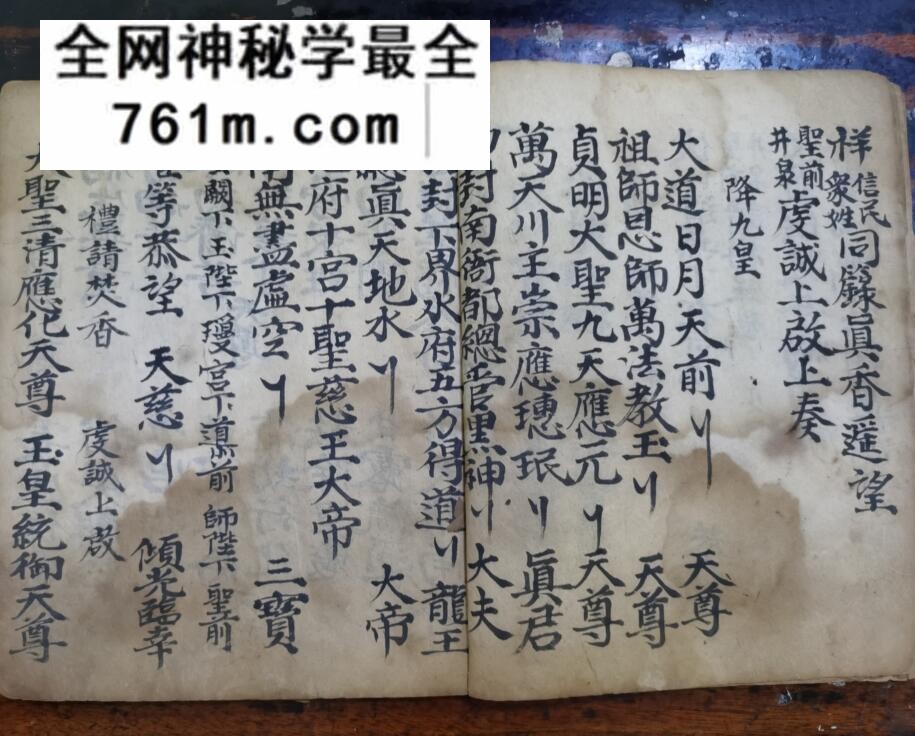 全网神秘学最全
761m.com
祥信民眾姓同籙眞香遥望
聖前井泉虔誠上啟上奏
降九皇
大道日月天前〢天尊
祖師恩師萬法教玉〢天尊
貞明大聖九天應元〢天尊
萬天川主崇應璁珉〢眞君
封南衙都總管黑神〢大夫
封下界水府五方得道〢龍王
眞天地水〢大帝
府十宮十聖慈王大帝
無盡虛空〢三寶
闕下玉陛下瓊宮下道前師陛下聖前
等恭望天慈〢傾光臨幸
禮請焚香虔誠上啟
大聖三清應化天尊玉皇統御天尊